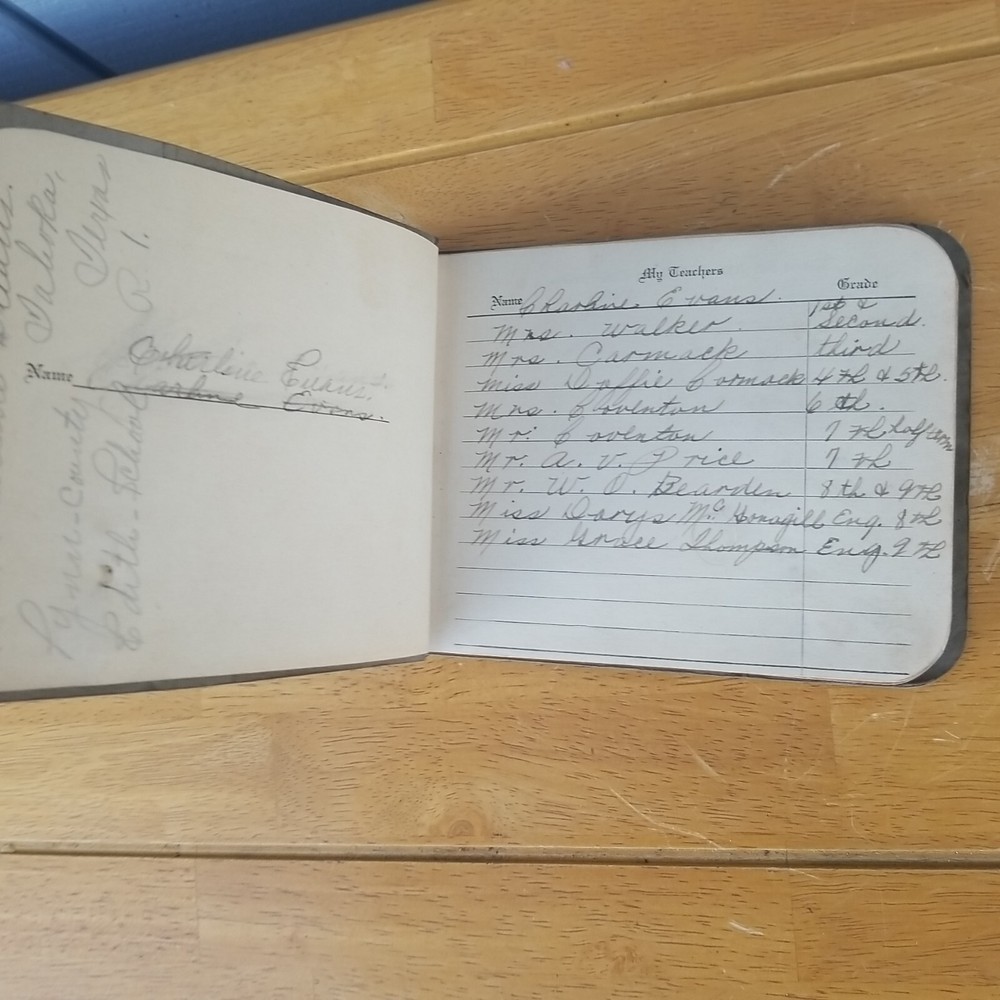 Tahoka,
Texas
R. 1.
Lynn-County
Edith-School
Name Charline Evans.
Charline Evans.
My Teachers
Name Grade
Charline Evans.
Mrs. Walker. 1st & Second.
Mrs. Carmack third
Miss Daffie Cormack 4th & 5th.
Mrs. Coventon 6th.
Mr. Coventon 7th half term
Mr. A. V. Price 7th
Mr. W. O. Bearden 8th & 9th
Miss Dorys Eng. 8th
Miss Grace Thompson Eng. 9th